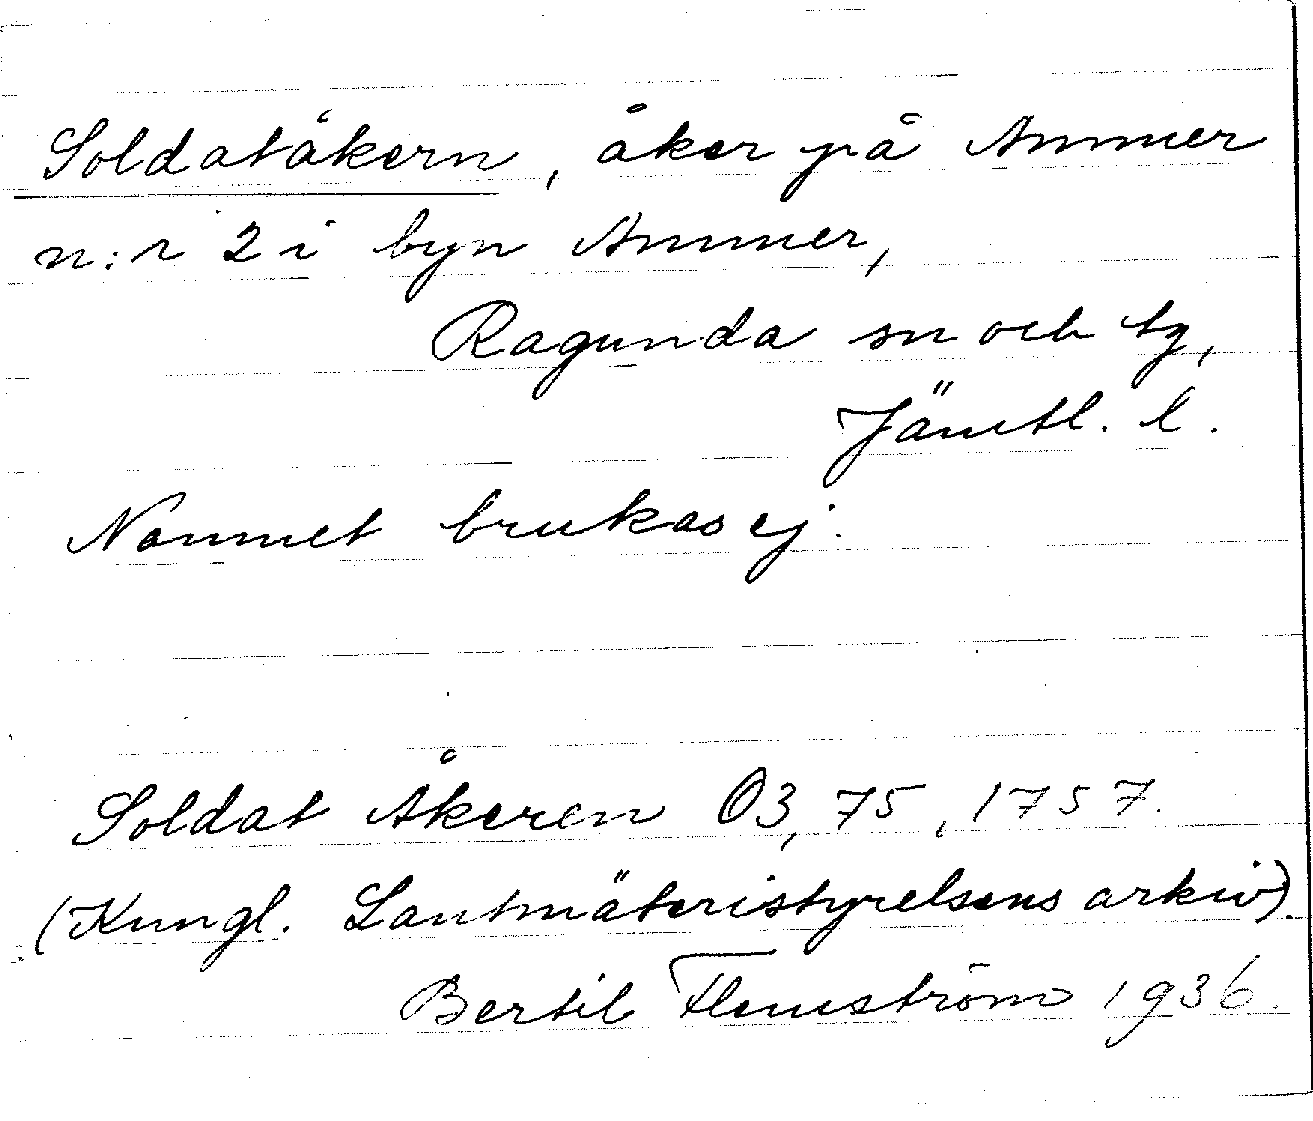 Soldatåkern, åker på Ammer
n:r 2 i byn Ammer,
Ragunda sn och tg,
Jämtl. l.
Namnet brukas ej.
Soldat Åkeren O3, 75, 1757.
(Kungl. Lantmäteristyrelsens arkiv).
Bertil Flemström 1936.